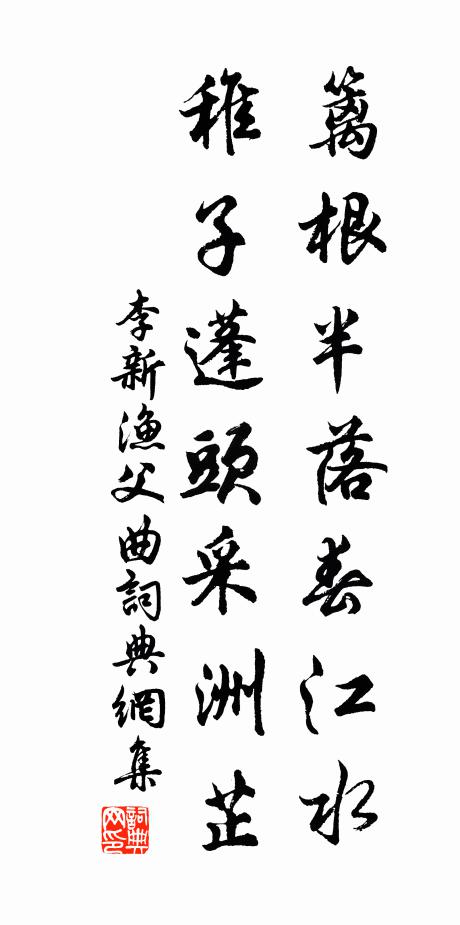 籬根半落春江水
稚子蓬頭采洲芷
李新漁父曲詞典網集
詞典网印